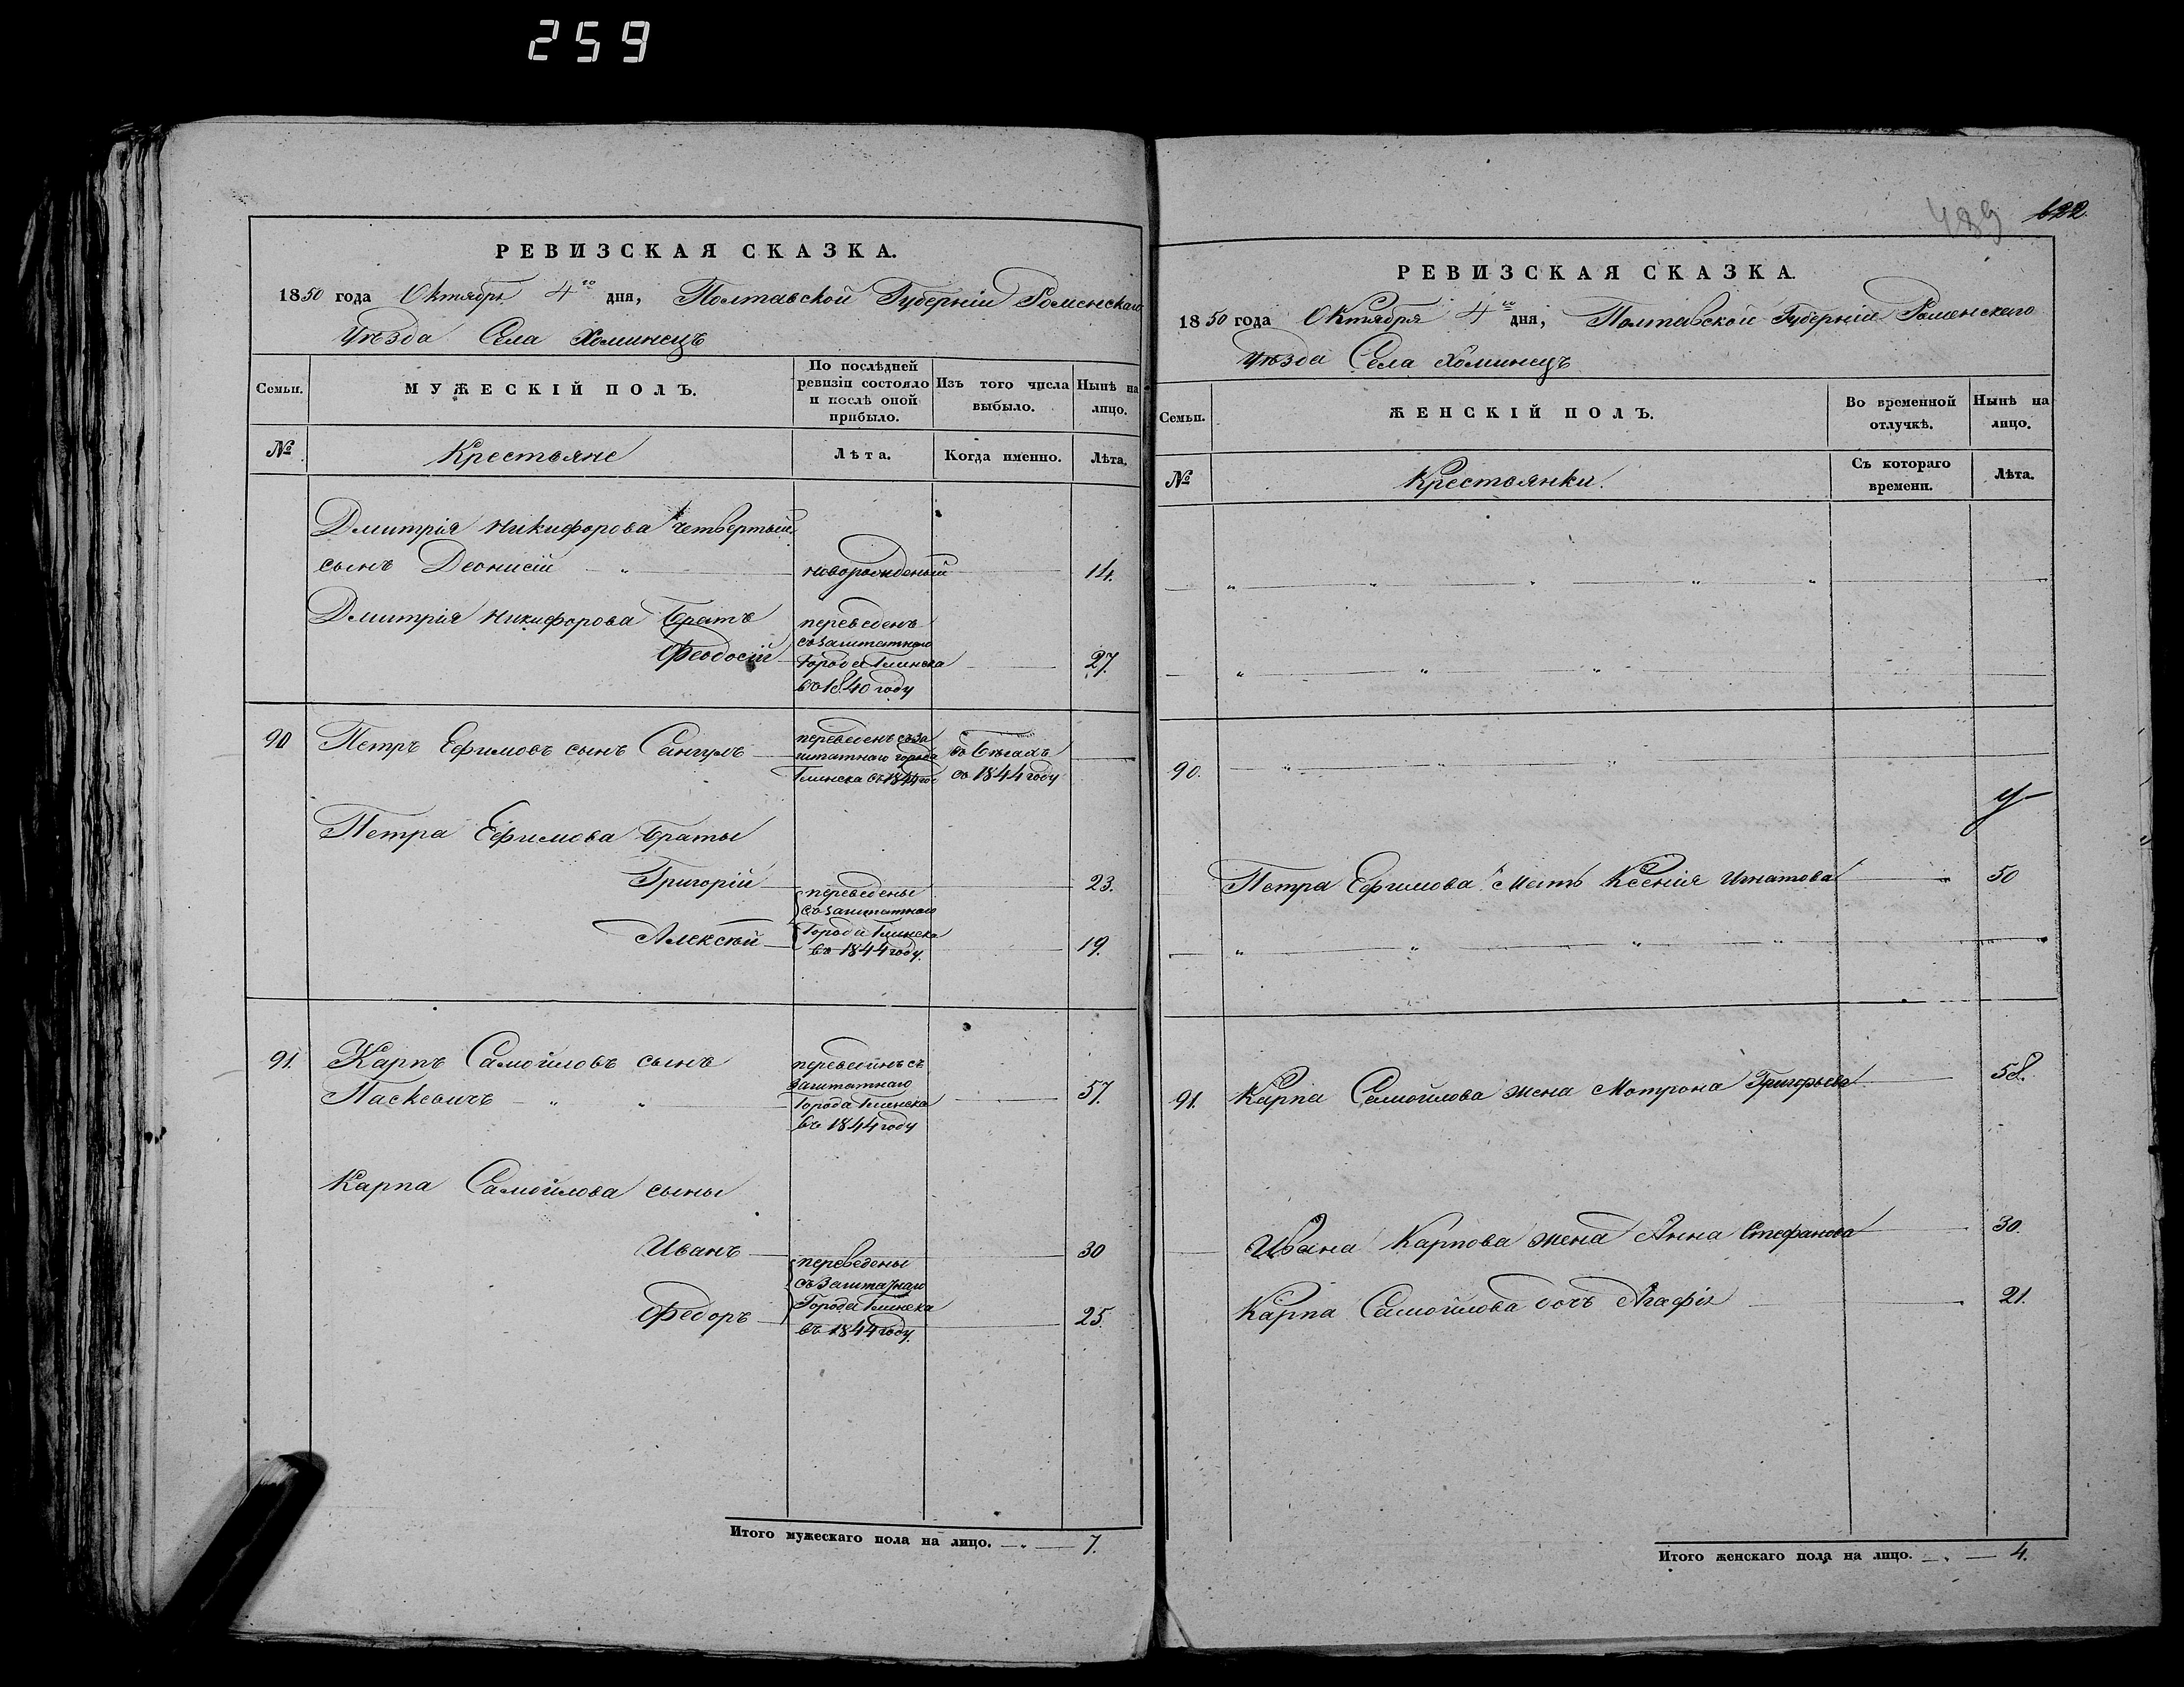 259
РЕВИЗСКАЯ СКАЗКА.
1850 года Октября 4го дня, Полтавской Губерніи Роменскаго
Уѣзда Села Хоминецъ
Семьи.
МУЖЕСКІЙ ПОЛЪ.
По послѣдней
ревизіи состояло
и послѣ оной
прибыло.
Изъ того числа
выбыло.
Нынѣ на
лицо.
№
Крестьяне
Лѣта.
Когда именно.
Лѣта.
Дмитрія Никифорова четвертый
сынъ Деонисій новорожденый 14.
Дмитрія Никифорова братъ
Феодосій 27.
переведенъ
съ заштатного
Города Глинска
въ 1840 году
90 Петръ Ефимовъ сынъ
переведенъ съ за
штатнаго города
Глинска въ 1844 го
въ бѣгахъ
съ 1844 году
Петра Ефимова браты
Григорій 23.
Алексѣй 19.
переведены
съ заштатного
Города Глинска
въ 1844 году.
91. Карпъ Самойловъ сынъ
Паскевичъ 57.
переведенъ съ
заштатнаго
Города Глинска
въ 1844 году
Карпа Самойлова сыны
Иванъ 30
Федоръ 25.
переведены
съ заштатнаго
Города Глинска
въ 1844 году.
Итого мужескаго пола на лицо. 7.
489 622.
РЕВИЗСКАЯ СКАЗКА.
1850 года Октября 4го дня, Полтавской Губерніи Роменскаго
Уѣзда Села Хоминецъ
Семьи.
ЖЕНСКІЙ ПОЛЪ.
Во временной
отлучкѣ.
Нынѣ на
лицо.
№
Крестьянки.
Съ котораго
времени.
Лѣта.
90.
Петра Ефимова мать Ксенія Игнатова 50
91. Карпа Самойлова жена Мотрона Григорьева 58.
Ивана Карпова жена Анна Стефанова 30.
Карпа Самойлова дочь Агафія 21.
Итого женскаго пола на лицо. 4.